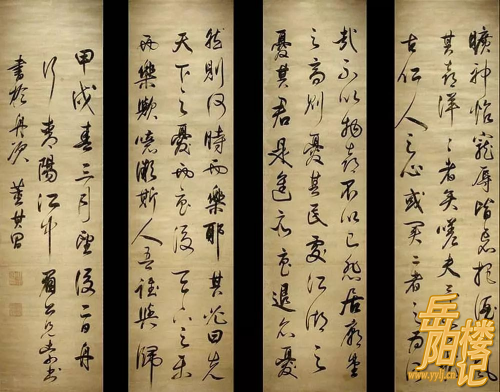 曠神怡寵辱皆忘把酒風
其喜洋洋者矣嗟夫
古仁人之心或異二者之為
哉不以物喜不以己悲居廟堂
之高則憂其民處江湖之
憂其君是進亦憂退亦憂
然則何時而樂耶其必曰先
天下之憂而憂後天下之樂
而樂歟噫微斯人吾誰與歸
甲戌春三月望後二日舟
行陽江中眉公兄索書
書於舟次 董其昌
岳阳楼记
www.yylj.cn